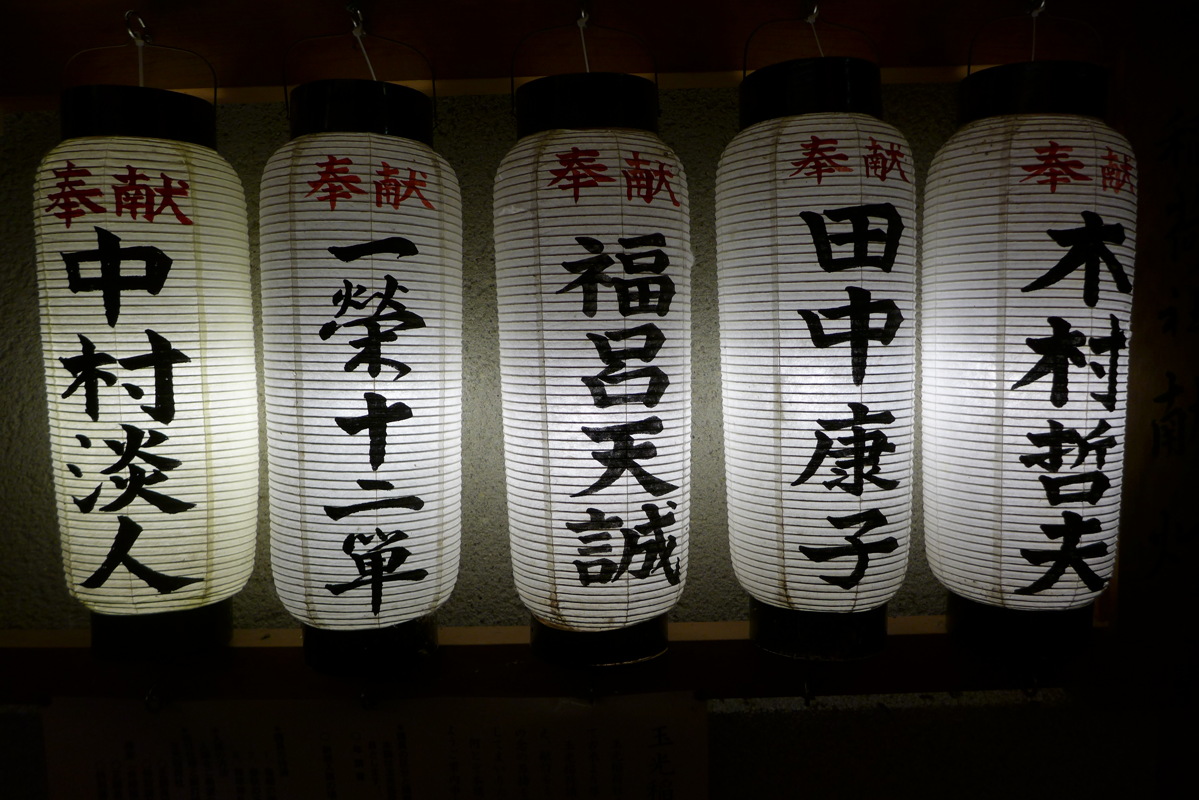 奉献
中村淡人
奉献
一榮十二単
奉献
福呂天誠
奉献
田中康子
奉献
木村哲夫